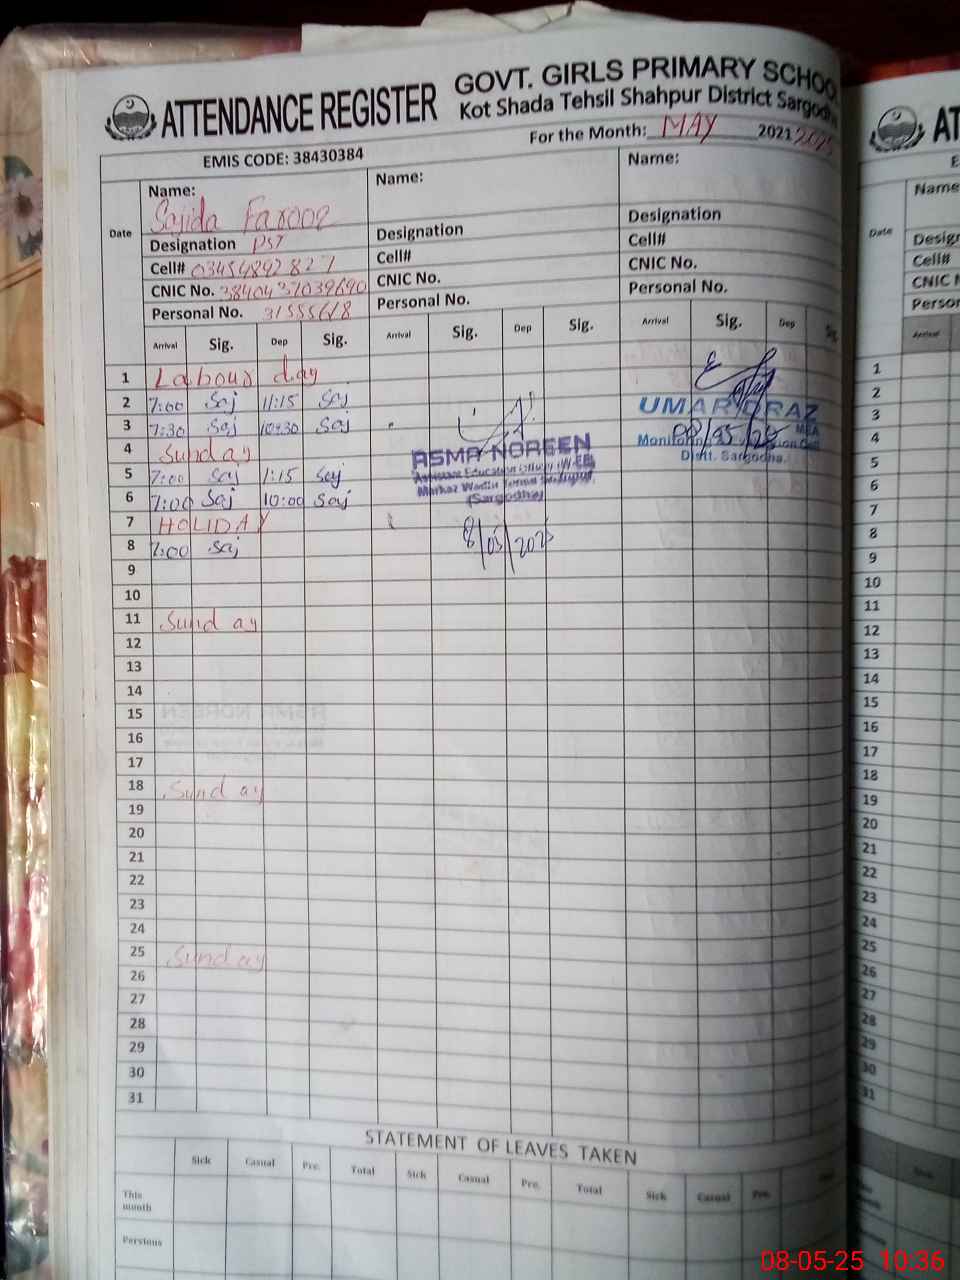 ATTENDANCE REGISTER
GOVT. GIRLS PRIMARY SCHOO
Kot Shada Tehsil Shahpur District Sargodh
For the Month: MAY 2021 2025
EMIS CODE: 38430384
Date
Name:
Sajida Farooq
Designation PST
Cell# 03454892827
CNIC No. 3840437039690
Personal No. 31555618
Name:
Designation
Cell#
CNIC No.
Personal No.
Name:
Designation
Cell#
CNIC No.
Personal No.
Arrival Sig. Dep Sig. Arrival Sig. Dep Sig. Arrival Sig. Dep Sig.
1 Labour day
2 7:00 Saj 11:15 Saj
3 7:30 Saj 10:30 Saj
4 Sunday
5 7:00 Saj 1:15 Saj
6 7:00 Saj 10:00 Saj
7 HOLIDAY
8 7:00 Saj
9
10
11 Sunday
12
13
14
15
16
17
18 Sunday
19
20
21
22
23
24
25 Sunday
26
27
28
29
30
31
ASMA NOREEN
Assistant Education Officer
(Sargodha)
8/05/2025
UMAR DRAZ
08/05/25
Distt. Sargodha.
STATEMENT OF LEAVES TAKEN
Sick Casual Pre. Total Sick Casual Pre. Total Sick Casual Pre.
This month
Pervious
AT
E
Date
Name
Design
Cell#
CNIC N
Person
Arrival
1
2
3
4
5
6
7
8
9
10
11
12
13
14
15
16
17
18
19
20
21
22
23
24
25
26
27
28
29
30
31
08-05-25 10:36